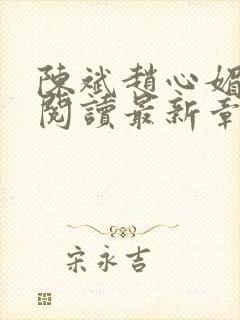 陳斌趙心媚
閱讀最新章
宋永吉